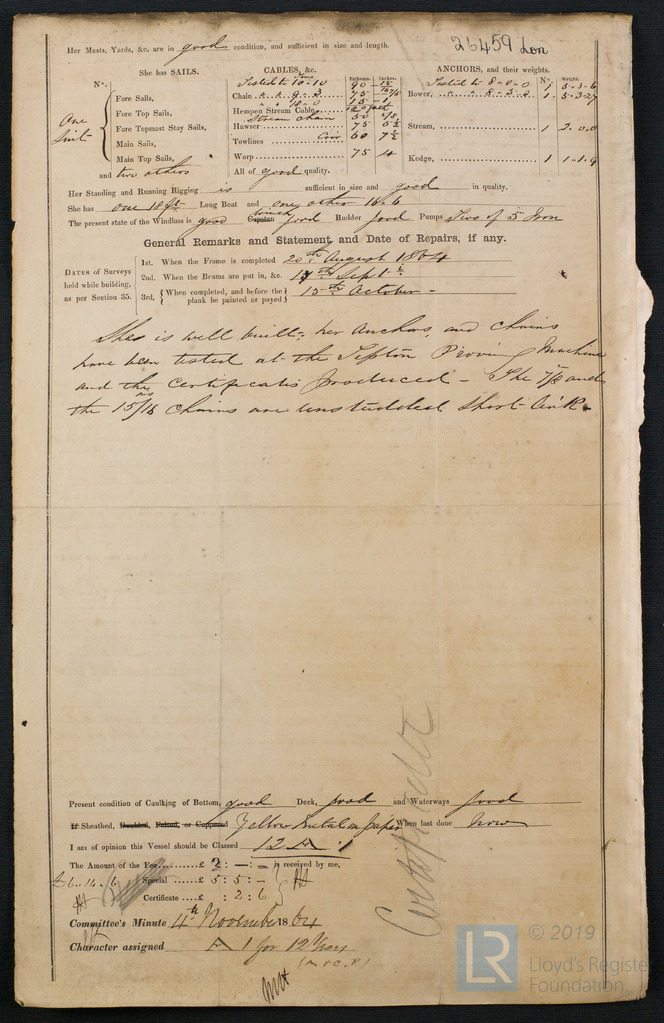 26459 Lon
Her Masts, Yards, &c. are in good condition, and sufficient in size and length.
She has SAILS. CABLES, &c. Fathoms. Inches. ANCHORS, and their weights.
Nº. Tested to Tons 10-10 90 - 15/16 Tested to 8-0-0 Nº. Weight.
Fore Sails, Chain 75 Bower, 1 5-3-6
Fore Top Sails, Hempen Stream Cable 1 5-3-27
One Suit Fore Topmast Stay Sails, Stream chain 50
Hawser 75 5½ Stream, 1 2-0-0
Main Sails, Towlines Coir 60 7½
Main Top Sails, Warp 75 4 Kedge, 1 1-1-9
and two others All of good quality.
Her Standing and Running Rigging is sufficient in size and good in quality.
She has one 18ft Long Boat and one other 16.6
The present state of the Windlass is good Capstan winch good Rudder good Pumps Two of 5 Iron
General Remarks and Statement, and Date of Repairs, if any.
DATES of Surveys held while building, as per Section 35.
1st. When the Frame is completed 20th August 1864
2nd. When the Beams are put in, &c. 17th Septr
3rd, { When completed, and before the plank be painted or payed } 15th October -
She is well built; her Anchors, and chains
have been tested at the Tipton Proving Machine
and the Certificates produced - The 7/8 and
the 15/16 chains are unstudded short link.
Present condition of Caulking of Bottom, good Deck, good and Waterways good
If Sheathed, Doubled, Felted, or Coppered Yellow metal on paper When last done Now
I am of opinion this Vessel should be Classed 12 A 1
The Amount of the Fee......£ 2 : - : - is received by me,
Special ......£ 5 : 5 : -
Certificate ...£ : 2 : 6
Committee's Minute 4th November 1864
Character assigned A 1 for 12 Years
© 2019
LR
Lloyd's Register
Foundation